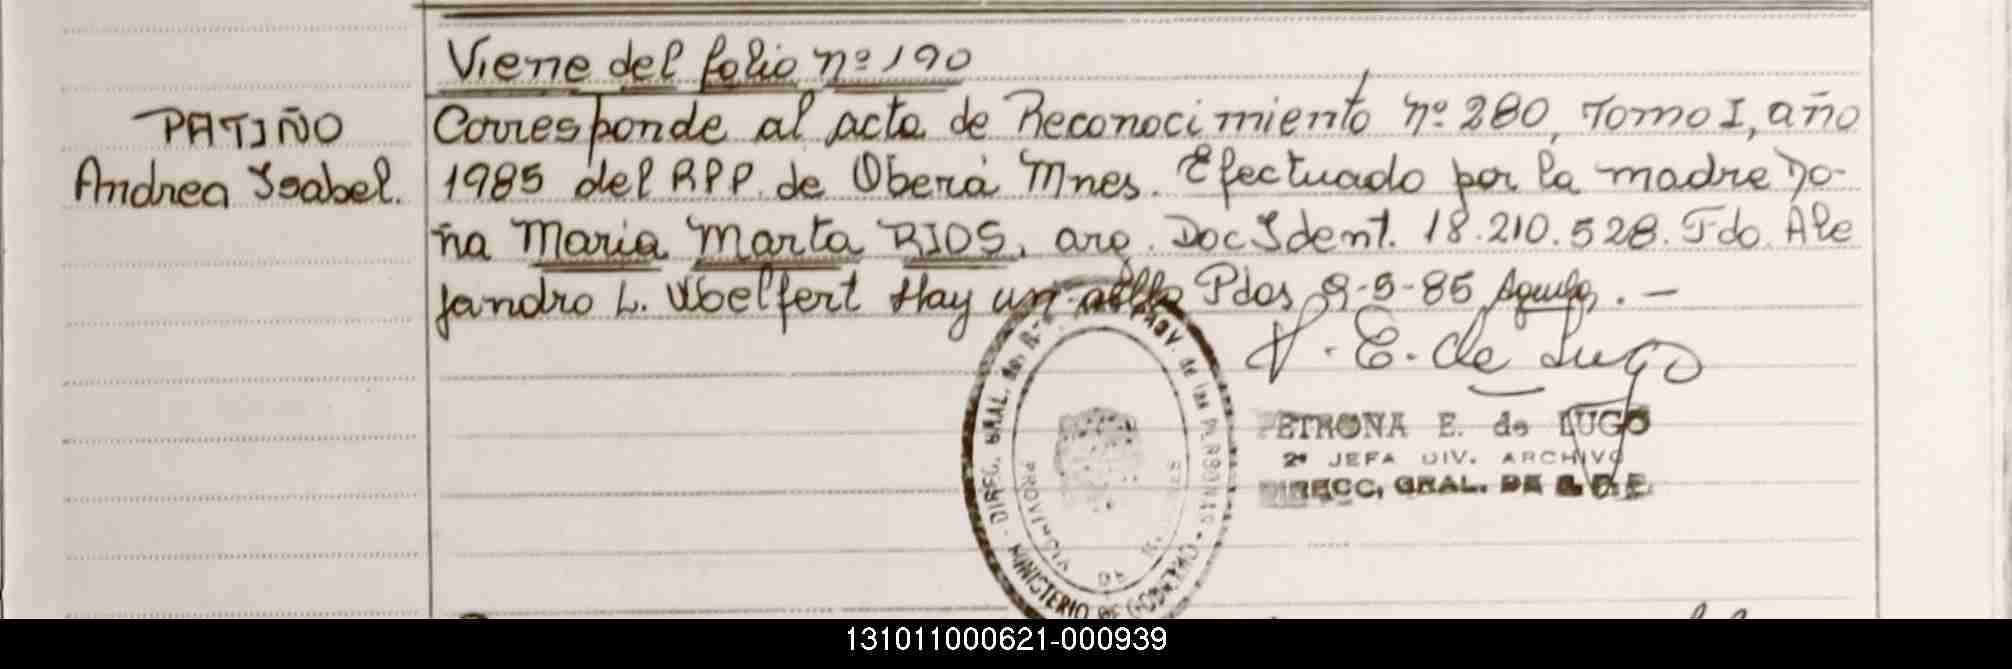 Viene del folio nº 190
PATIÑO
Andrea Isabel.
Corresponde al acta de Reconocimiento nº 280, Tomo I, año
1985 del RPP. de Oberá Mnes. Efectuado por la madre Do-
ña Maria Marta RIOS, arg. Doc Ident. 18.210.528. Fdo. Ale
jandro L. Woelfert Hay un sello Pdas 9-9-85
P. E. de Lugo
PETRONA E. de LUGO
2ª JEFA DIV. ARCHIVO
DIRECC, GRAL. DE R. P. P.
DIREC. GRAL. del PROV. de las PERSONAS
MINISTERIO DE GOBIERNO
131011000621-000939